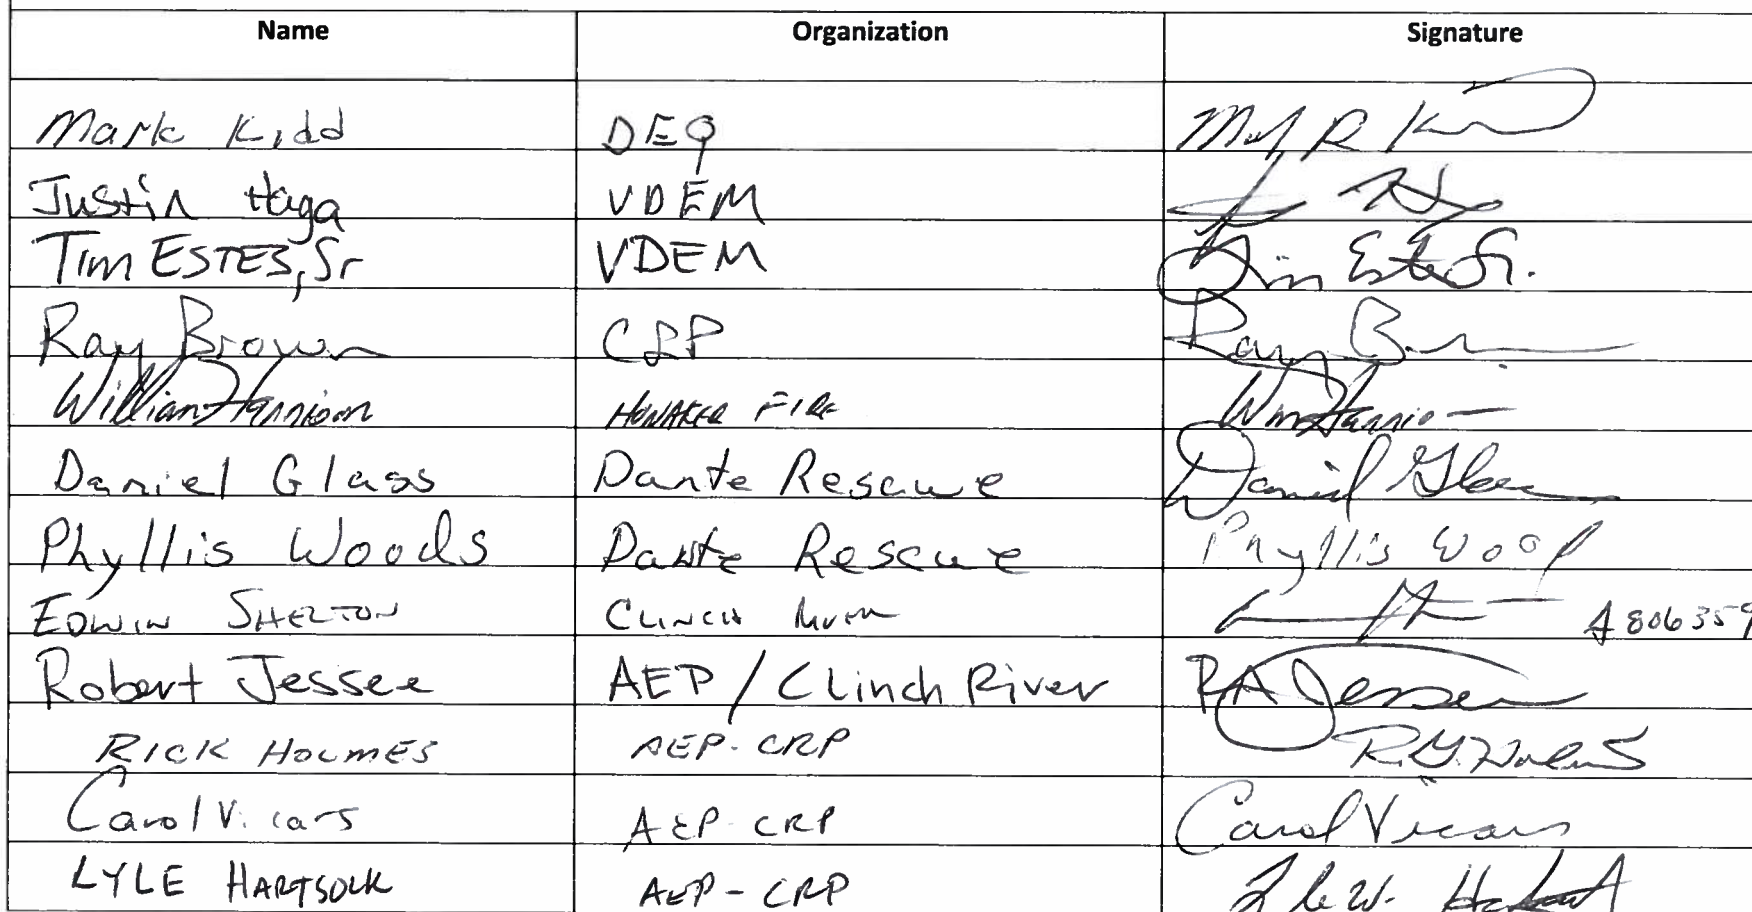 Name Organization Signature
Mark Kidd DEQ Mark R Kidd
Justin Haga VDEM
Tim ESTES, Sr VDEM Tim Estes Sr.
Ray Brown CRP Ray Brown
William Harrison HONAKER FIRE Wm Harrison
Daniel Glass Dante Rescue Daniel Glass
Phyllis Woods Dante Rescue Phyllis Woods
EDWIN SHELTON CLINCH River A806359
Robert Jessee AEP / Clinch River RA Jessee
RICK HOLMES AEP-CRP R.G. Holmes
Carol Vicars AEP-CRP Carol Vicars
LYLE HARTSOCK AEP-CRP Lyle W. Hartsock